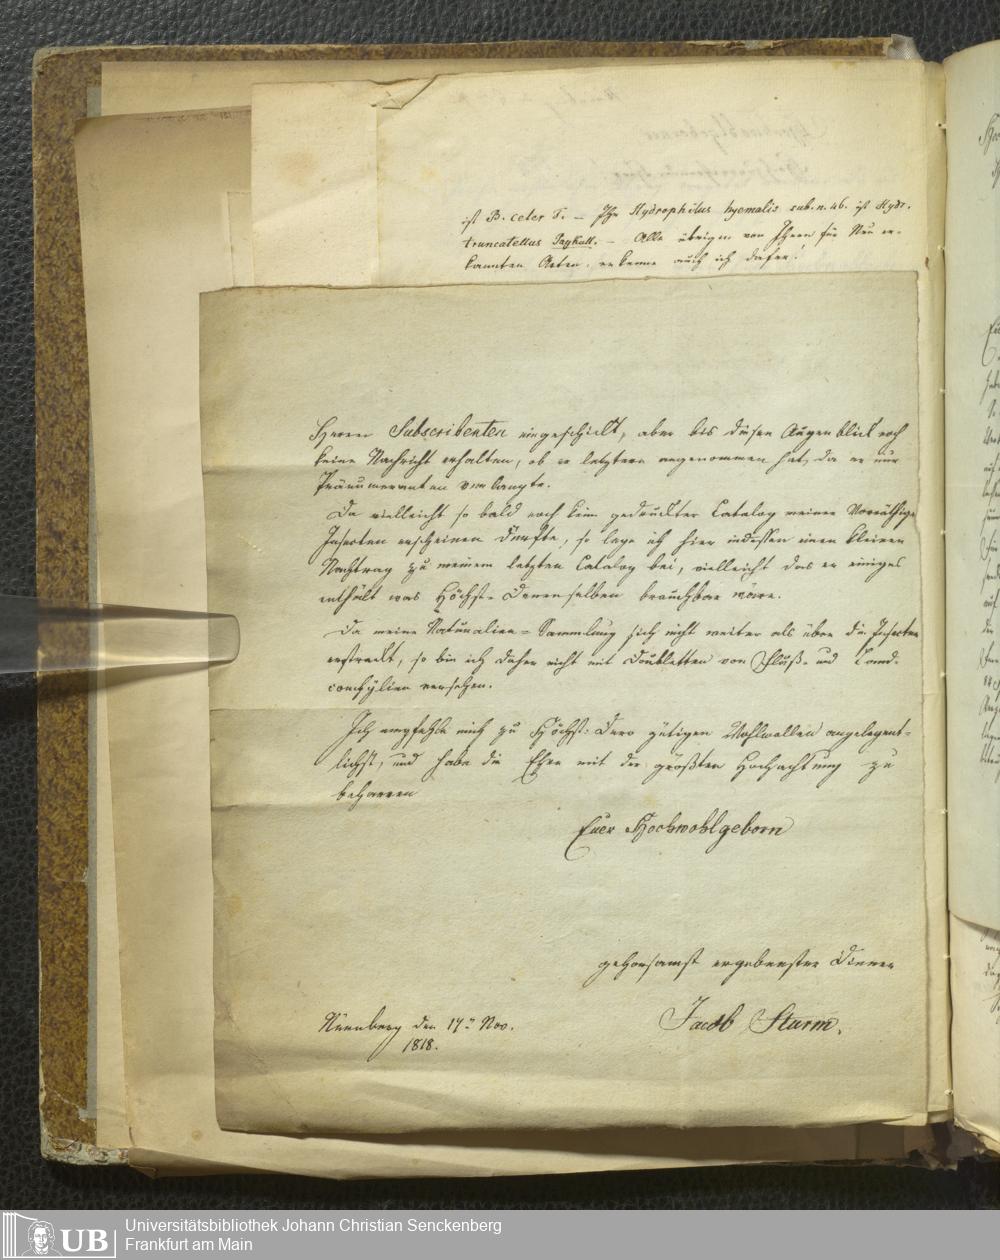 ist B. celer F. – Ihr Hydrophilus hyemalis sub. n. 46. ist Hydr.
truncatellus Paykull. – Alle übrigen von Ihnen für Neu er-
kannten Arten, erkenne auch ich dafür!
Herren Subscribenten eingeschickt, aber bis diesen Augenblick noch
keine Nachricht erhalten, ob er letztere angenommen hat, da er nur
Pränumeranten verlangte.
Da vielleicht so bald noch kein gedruckter Catalog meiner Vorräthigen
Insecten erscheinen dürfte, so lege ich hier indessen einen kleinen
Nachtrag zu meinem letzten Catalog bei, vielleicht das er einiges
enthält was Höchst-Denenselben brauchbar wäre.
Da meine Naturalien-Sammlung sich nicht weiter als über die Insecten
erstreckt, so bin ich daher nicht mit Doubletten von Fluß- und Land-
conchylien versehen.
Ich empfehle mich zu Höchst-Dero gütigen Wohlwollen angelegent-
lichst, und habe die Ehre mit der größten Hochachtung zu
beharren
Euer Hochwohlgeborn
gehorsamst ergebenster Diener
Jacob Sturm.
Nürnberg den 17n Nov.
1818.
UB
Universitätsbibliothek Johann Christian Senckenberg
Frankfurt am Main